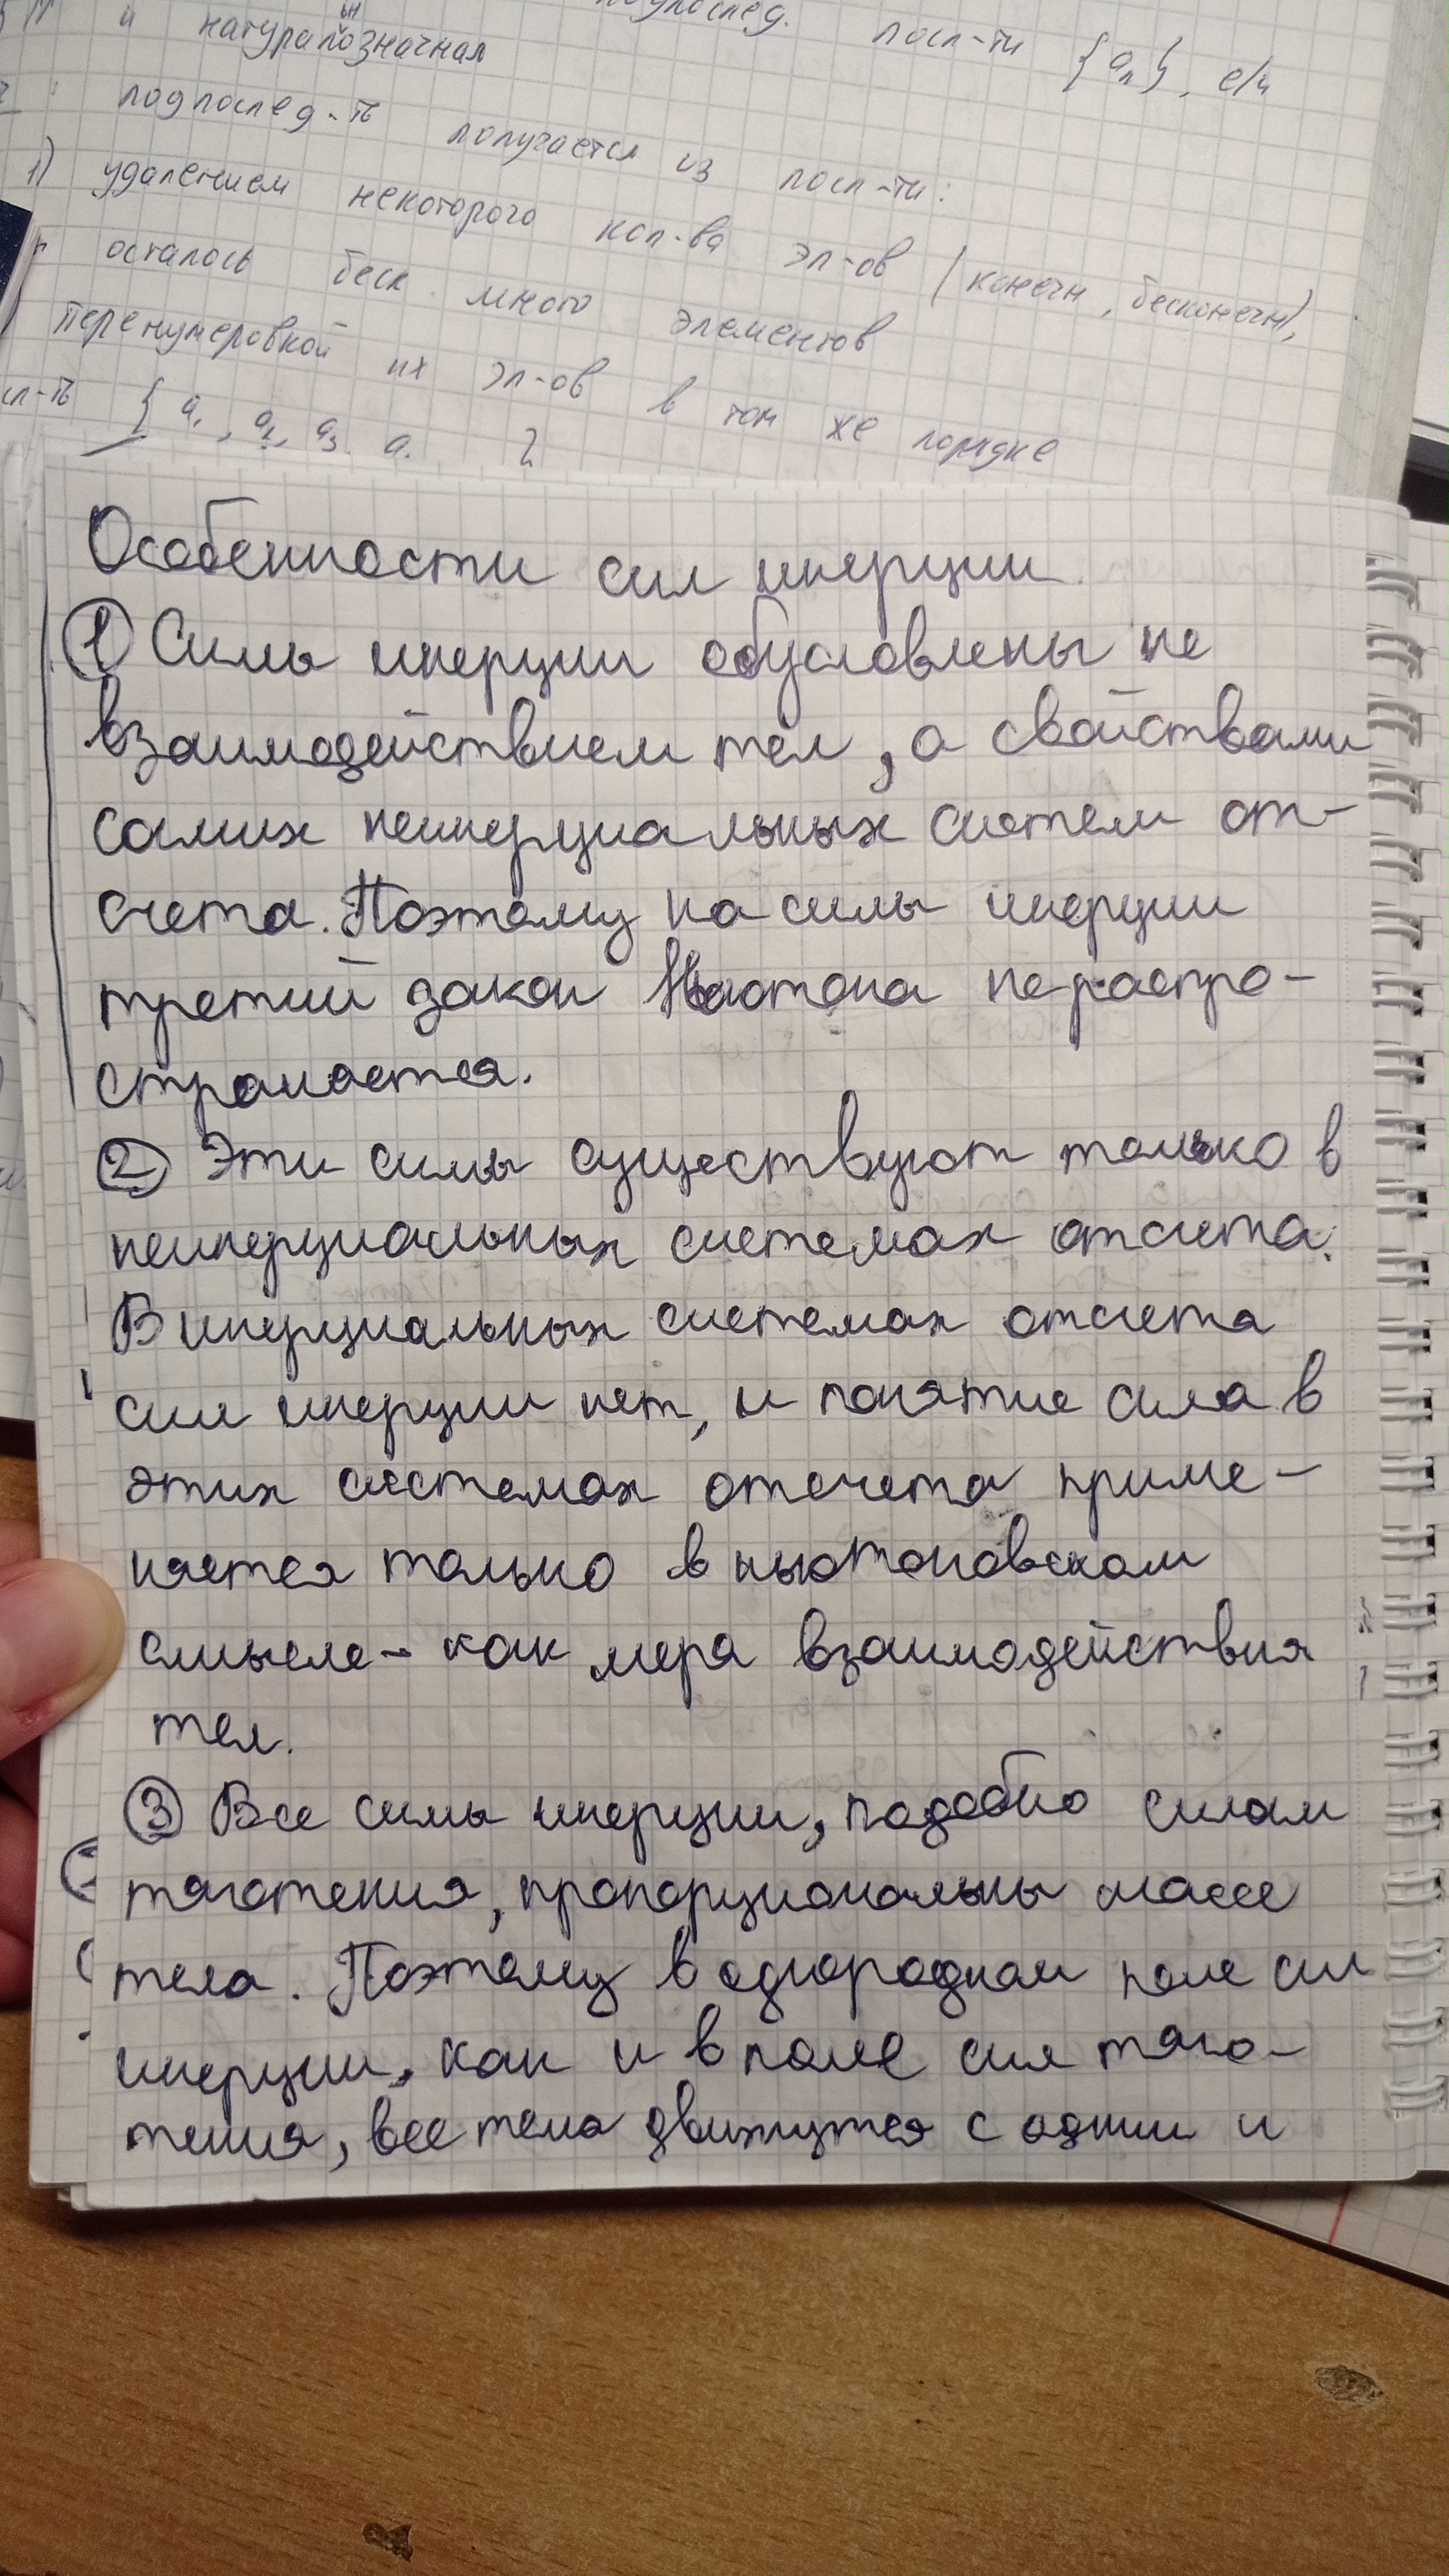 и натуральнозначная
подпослед. посл-ти {aₙ}, е/и
подпослед-ть получается из посл-ти:
1) удалением некоторого кол-ва эл-ов (конечн, бесконечн),
осталось беск. много элементов
перенумеровкой их эл-ов в том же порядке
{ a₁, a₂, a₃
Особенности сил инерции
① Силы инерции обусловлены не
взаимодействием тел, а свойствами
самих неинерциальных систем от-
счета. Поэтому на силы инерции
третий закон Ньютона не распро-
страняется.
② Эти силы существуют только в
неинерциальных системах отсчета.
В инерциальных системах отсчета
сил инерции нет, и понятие сила в
этих системах отсчета приме-
няется только в ньютоновском
смысле - как мера взаимодействия
тел.
③ Все силы инерции, подобно силам
тяготения, пропорциональны массе
тела. Поэтому в однородном поле сил
инерции, как и в поле сил тяго-
тения, все тела движутся с одним и